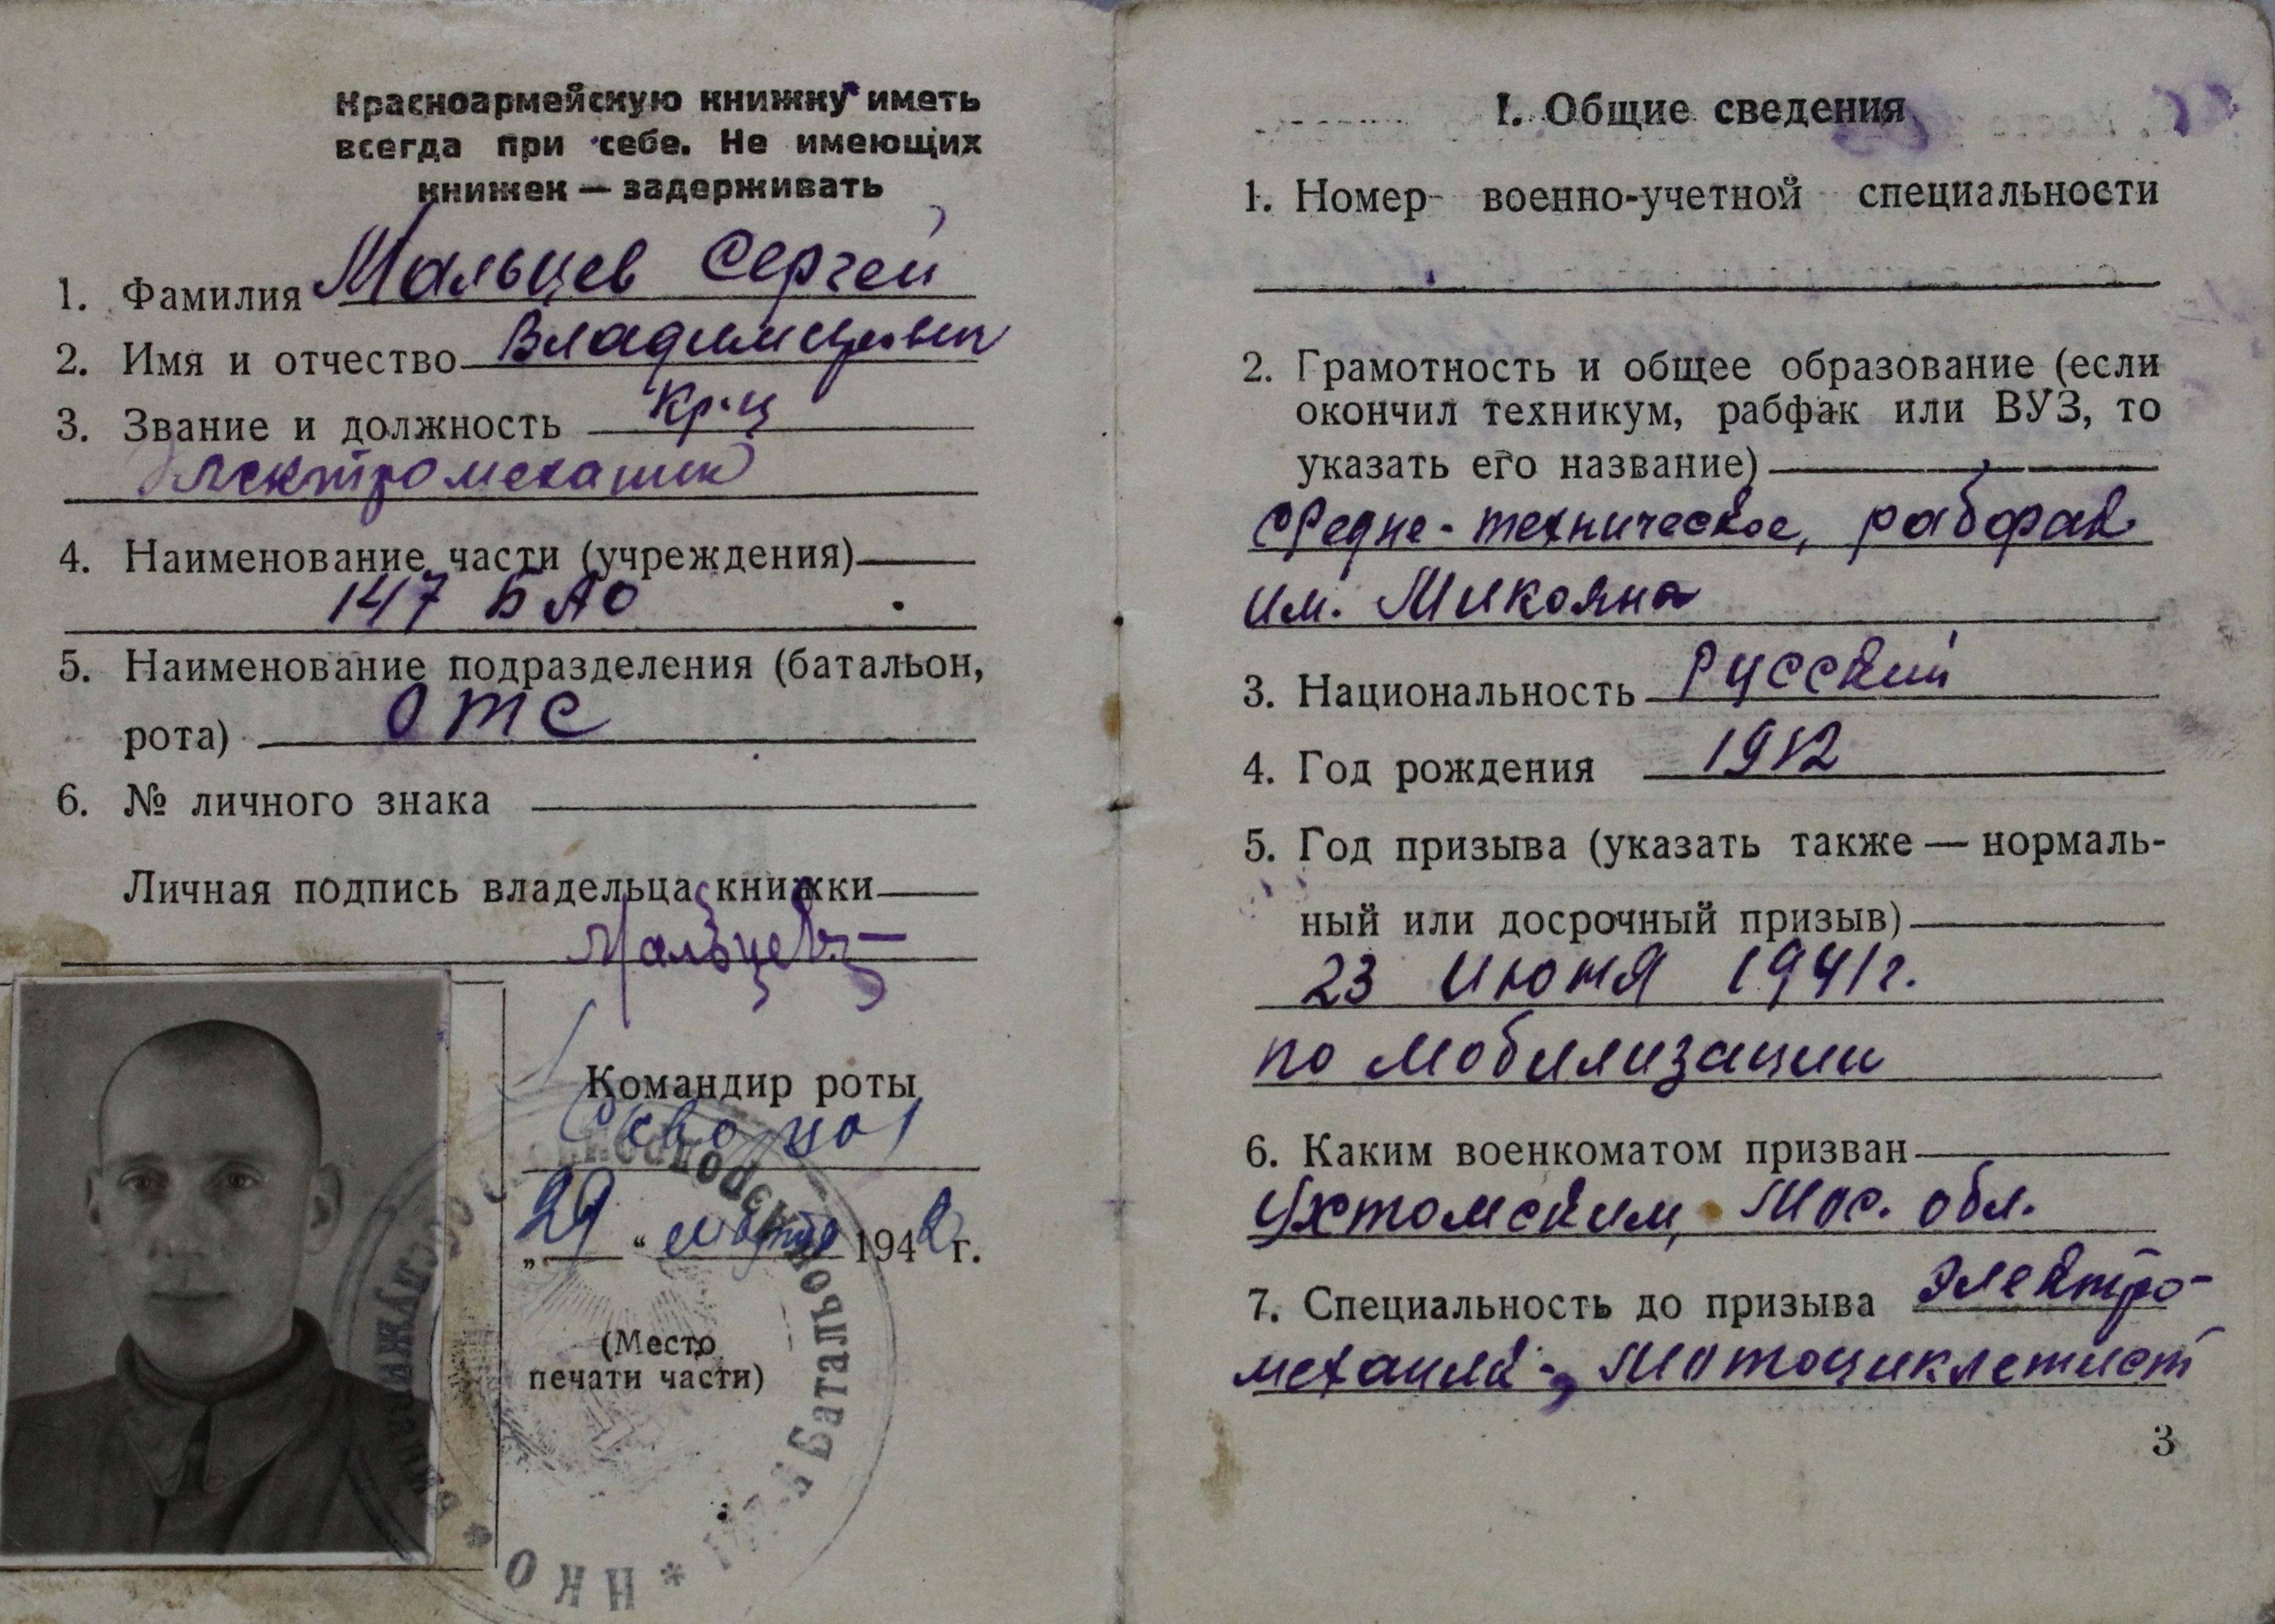 Красноармейскую книжку иметь
всегда при себе. Не имеющих
книжек — задерживать
1. Фамилия Мальцев Сергей
2. Имя и отчество Владимирович
3. Звание и должность кр-ц
Электромеханик
4. Наименование части (учреждения)
147 БАО
5. Наименование подразделения (батальон,
рота) ОТС
6. № личного знака
Личная подпись владельца книжки
Мальцев
Командир роты
„29“ марта 1942 г.
(Место
печати части)
аэродромного обслуживания * НКО * Батальон
I. Общие сведения
1. Номер военно-учетной специальности
2. Грамотность и общее образование (если
окончил техникум, рабфак или ВУЗ, то
указать его название)
средне-техническое, рабфак
им. Микояна
3. Национальность Русский
4. Год рождения 1912
5. Год призыва (указать также — нормаль-
ный или досрочный призыв)
23 Июня 1941 г.
по мобилизации
6. Каким военкоматом призван
Ухтомским, Мос. обл.
7. Специальность до призыва электро-
механик-, Мотоциклетист
3